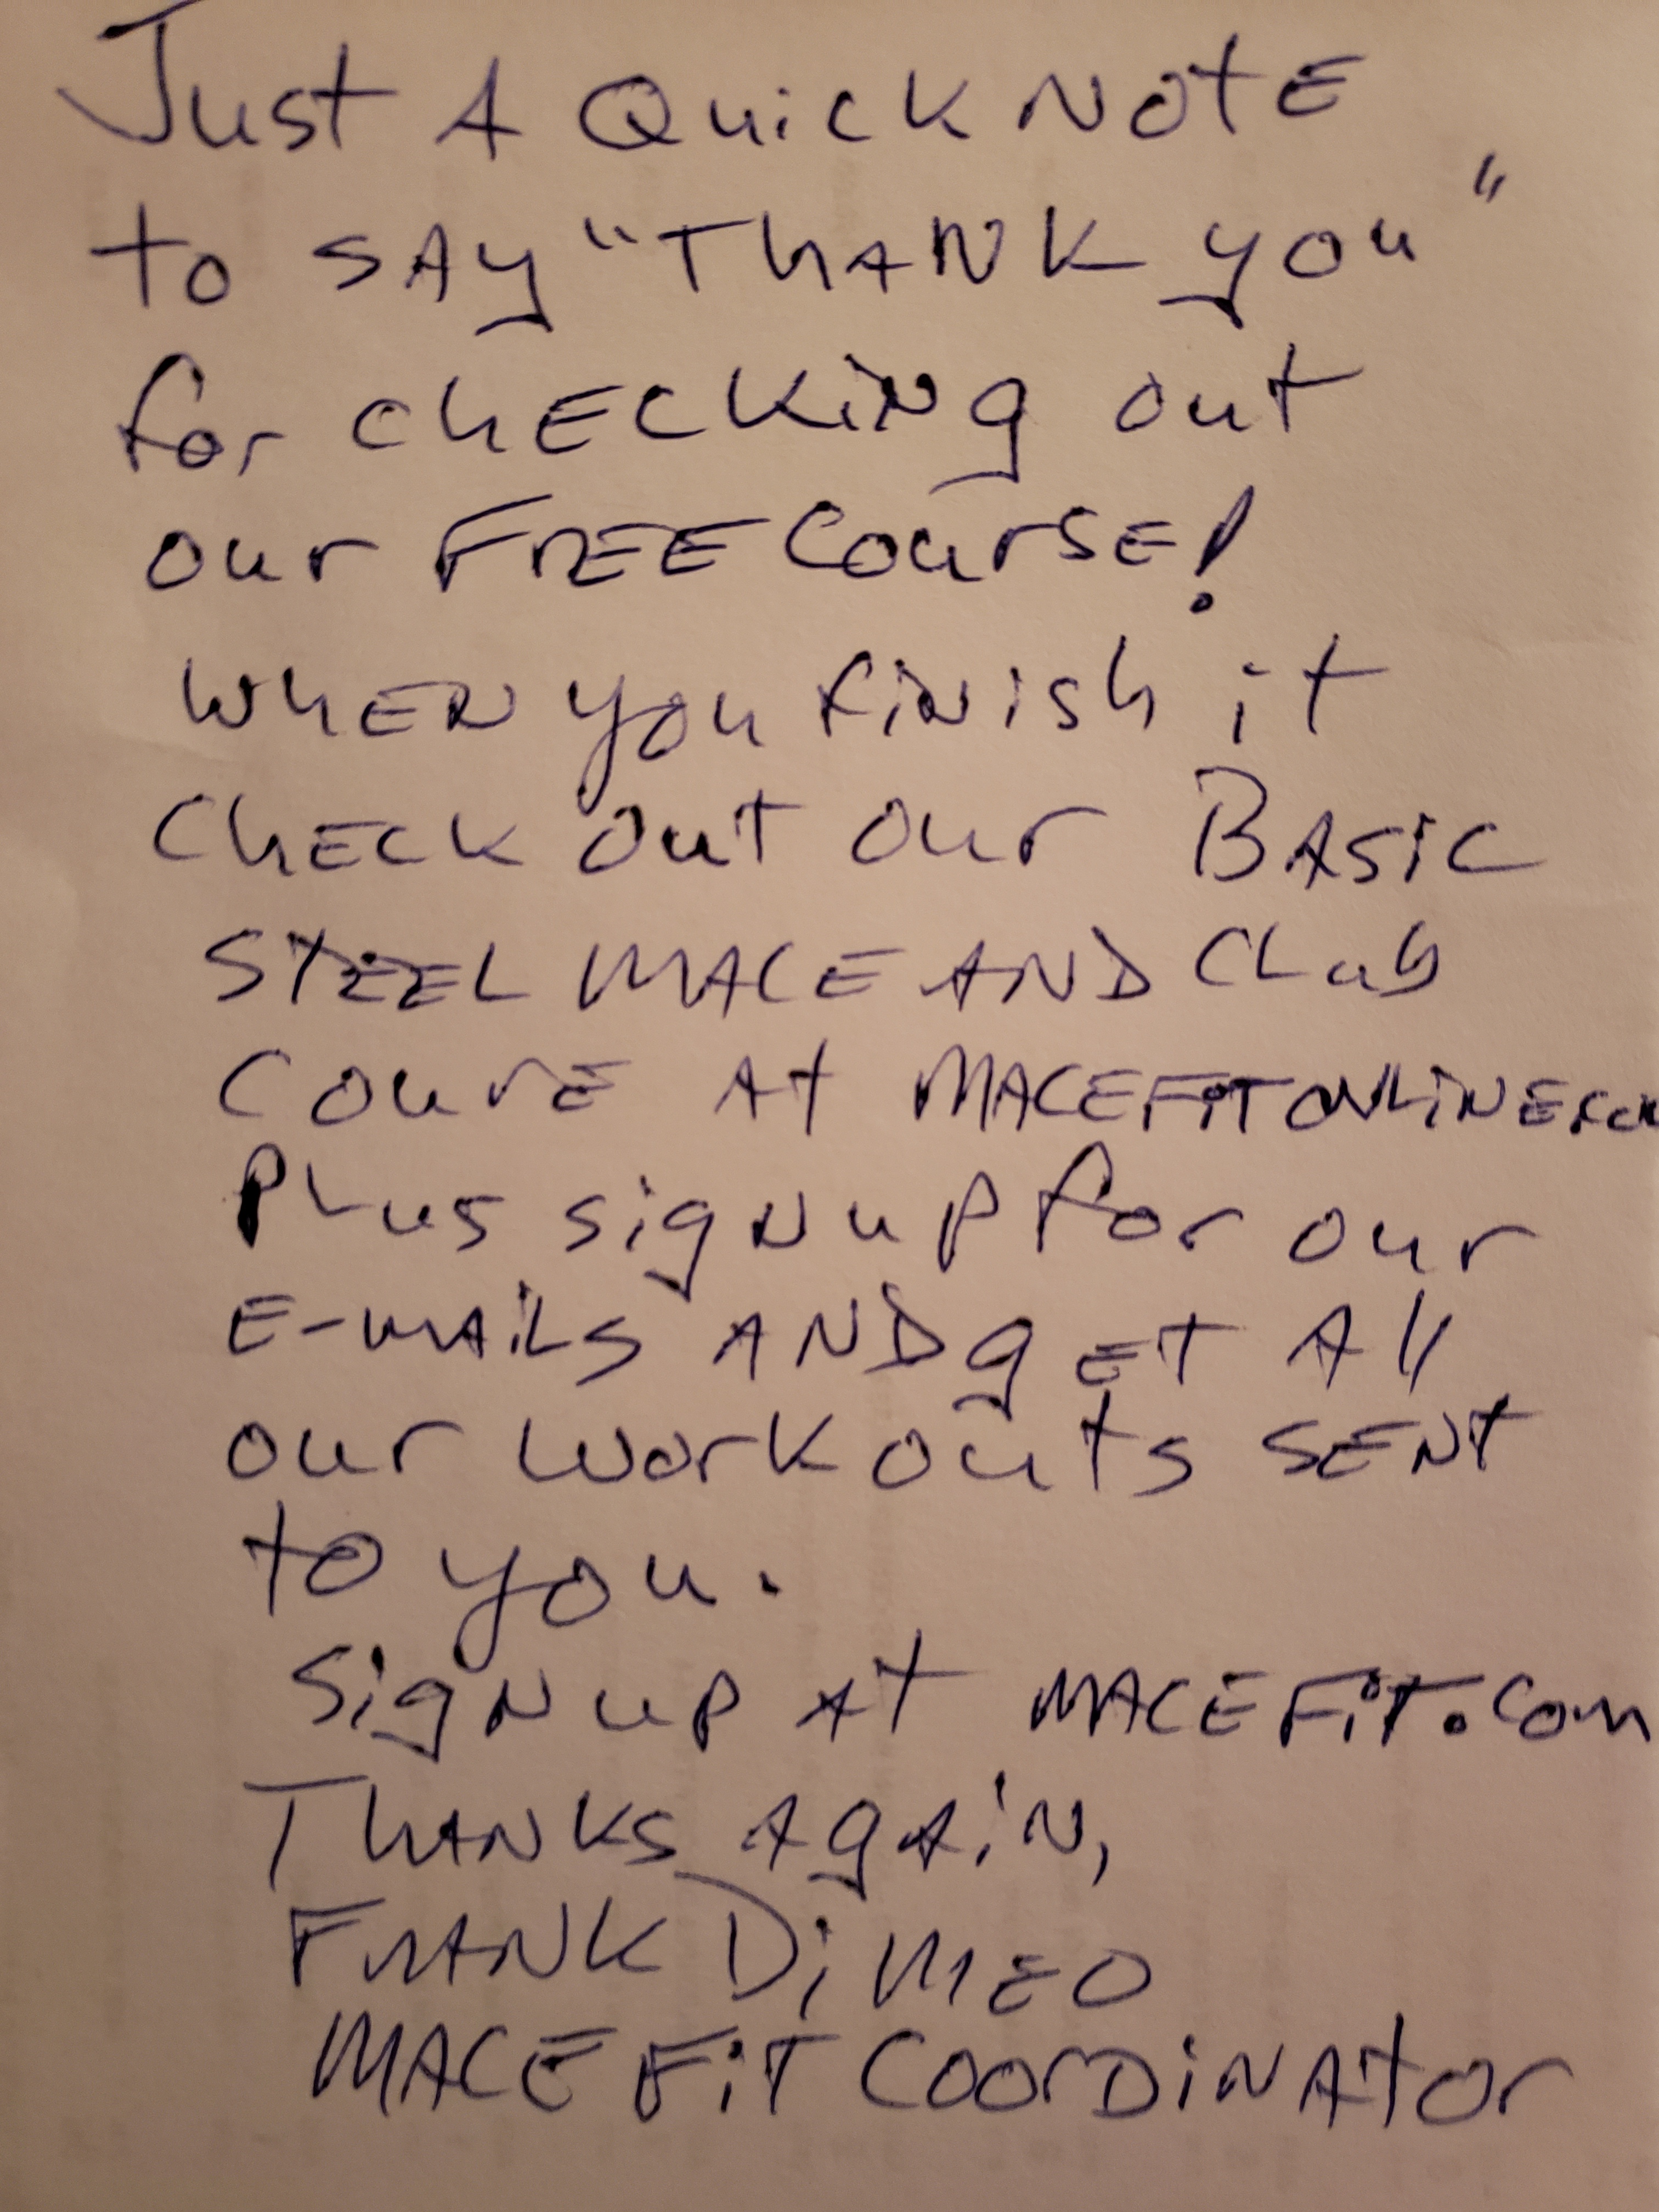 Just A Quick NOtE
to SAy "ThANK you"
for chECKiNg out
our FrEE Course!
WhEN you finish it
ChECK out our BASiC
STEEL MACE AND CLub
CourE At MACEFiTONLiNE.com
PLus signup for our
E-mAiLs AND gET All
our workouts SENt
to you.
Signup At MACEFiT.com
ThANKS AgAiN,
FrANK DiMEO
MACEFiT CoorDiNAtor